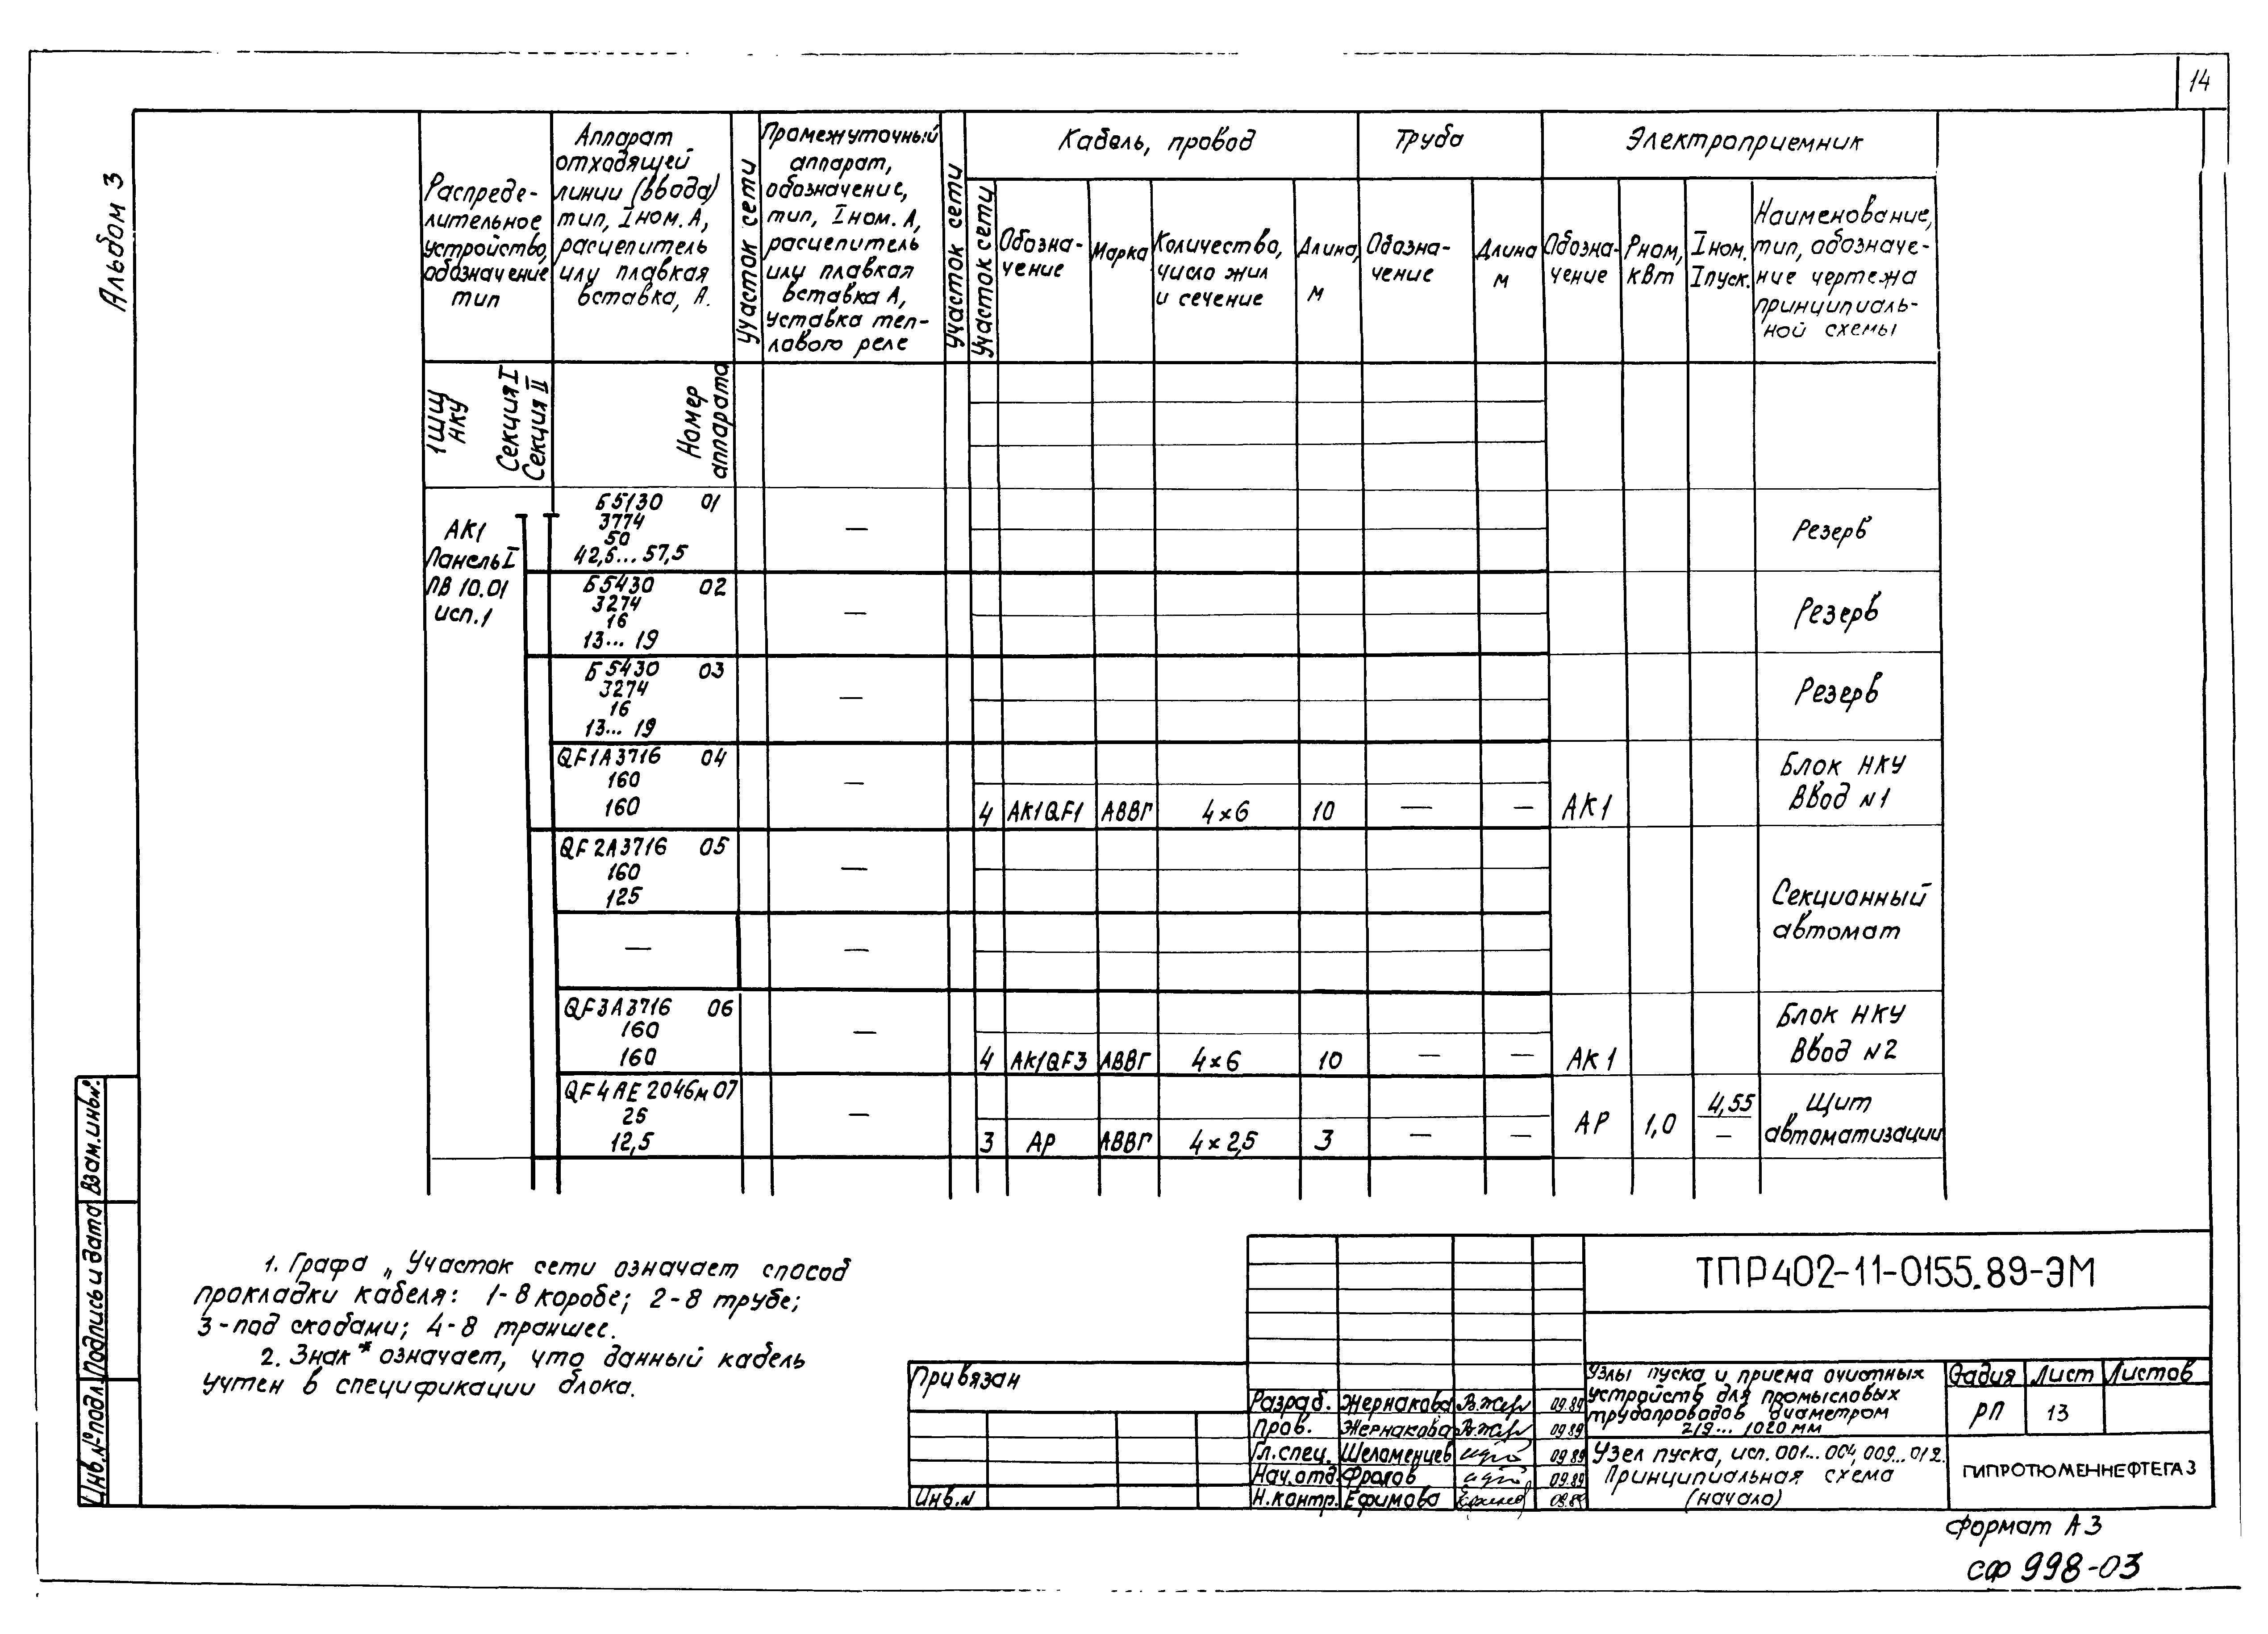 14
Альбом 3
Распреде-
лительное
устройство,
обозначение
тип
Аппарат
отходящей
линии (ввода)
тип, Iном. А,
расцепитель
или плавкая
вставка, А.
Участок сети
Промежуточный
аппарат,
обозначение,
тип, Iном. А,
расцепитель
или плавкая
вставка А,
уставка теп-
лового реле
Участок сети
Кабель, провод
Участок сети
Обозна-
чение
Марка
Количество,
число жил
и сечение
Длина,
м
Труба
Обозна-
чение
Длина
м
Электроприемник
Обозна-
чение
Рном,
кВт
Iном.
Iпуск.
Наименование,
тип, обозначе-
ние чертежа
принципиаль-
ной схемы
1ШЩ
НКУ
Секция I
Секция II
Номер
аппарата
АК1
Панель I
ПВ 10.01
исп.1
Б5130 01
3774
50
42,5... 57,5
—
Резерв
Б5430 02
3274
16
13... 19
—
Резерв
Б5430 03
3274
16
13... 19
—
Резерв
QF1А3716 04
160
160
—
4 АК1QF1 АВВГ 4×6 10 — — АК1
Блок НКУ
Ввод №1
QF2А3716 05
160
125
—
Секционный
автомат
— —
QF3А3716 06
160
160
—
4 АК1QF3 АВВГ 4×6 10 — — АК1
Блок НКУ
Ввод №2
QF4АЕ2046м 07
25
12,5
—
3 АР АВВГ 4×2,5 3 — — АР 1,0 4,55 —
Щит
автоматизации
1. Графа „ Участок сети означает способ
прокладки кабеля: 1-В коробе; 2-В трубе;
3-под скобами; 4-В траншее.
2. Знак * означает, что данный кабель
учтен в спецификации блока.
Взам.инв№.
Подпись и дата
Инв.№подл.
Привязан
Инв.№
Разраб. Жернакова 09.89
Пров. Жернакова 09.89
Гл.спец. Шеломенцев 09.89
Нач.отд. Фролов 09.89
Н.контр. Ефимова 09.89
ТПР402-11-0155.89-ЭМ
Узлы пуска и приема очистных
устройств для промысловых
трубопроводов диаметром
219... 1020 мм
Стадия Лист Листов
РП 13
Узел пуска, исп. 001... 004, 009... 012.
Принципиальная схема
(начало)
ГИПРОТЮМЕННЕФТЕГАЗ
Формат А3
сф 998-03